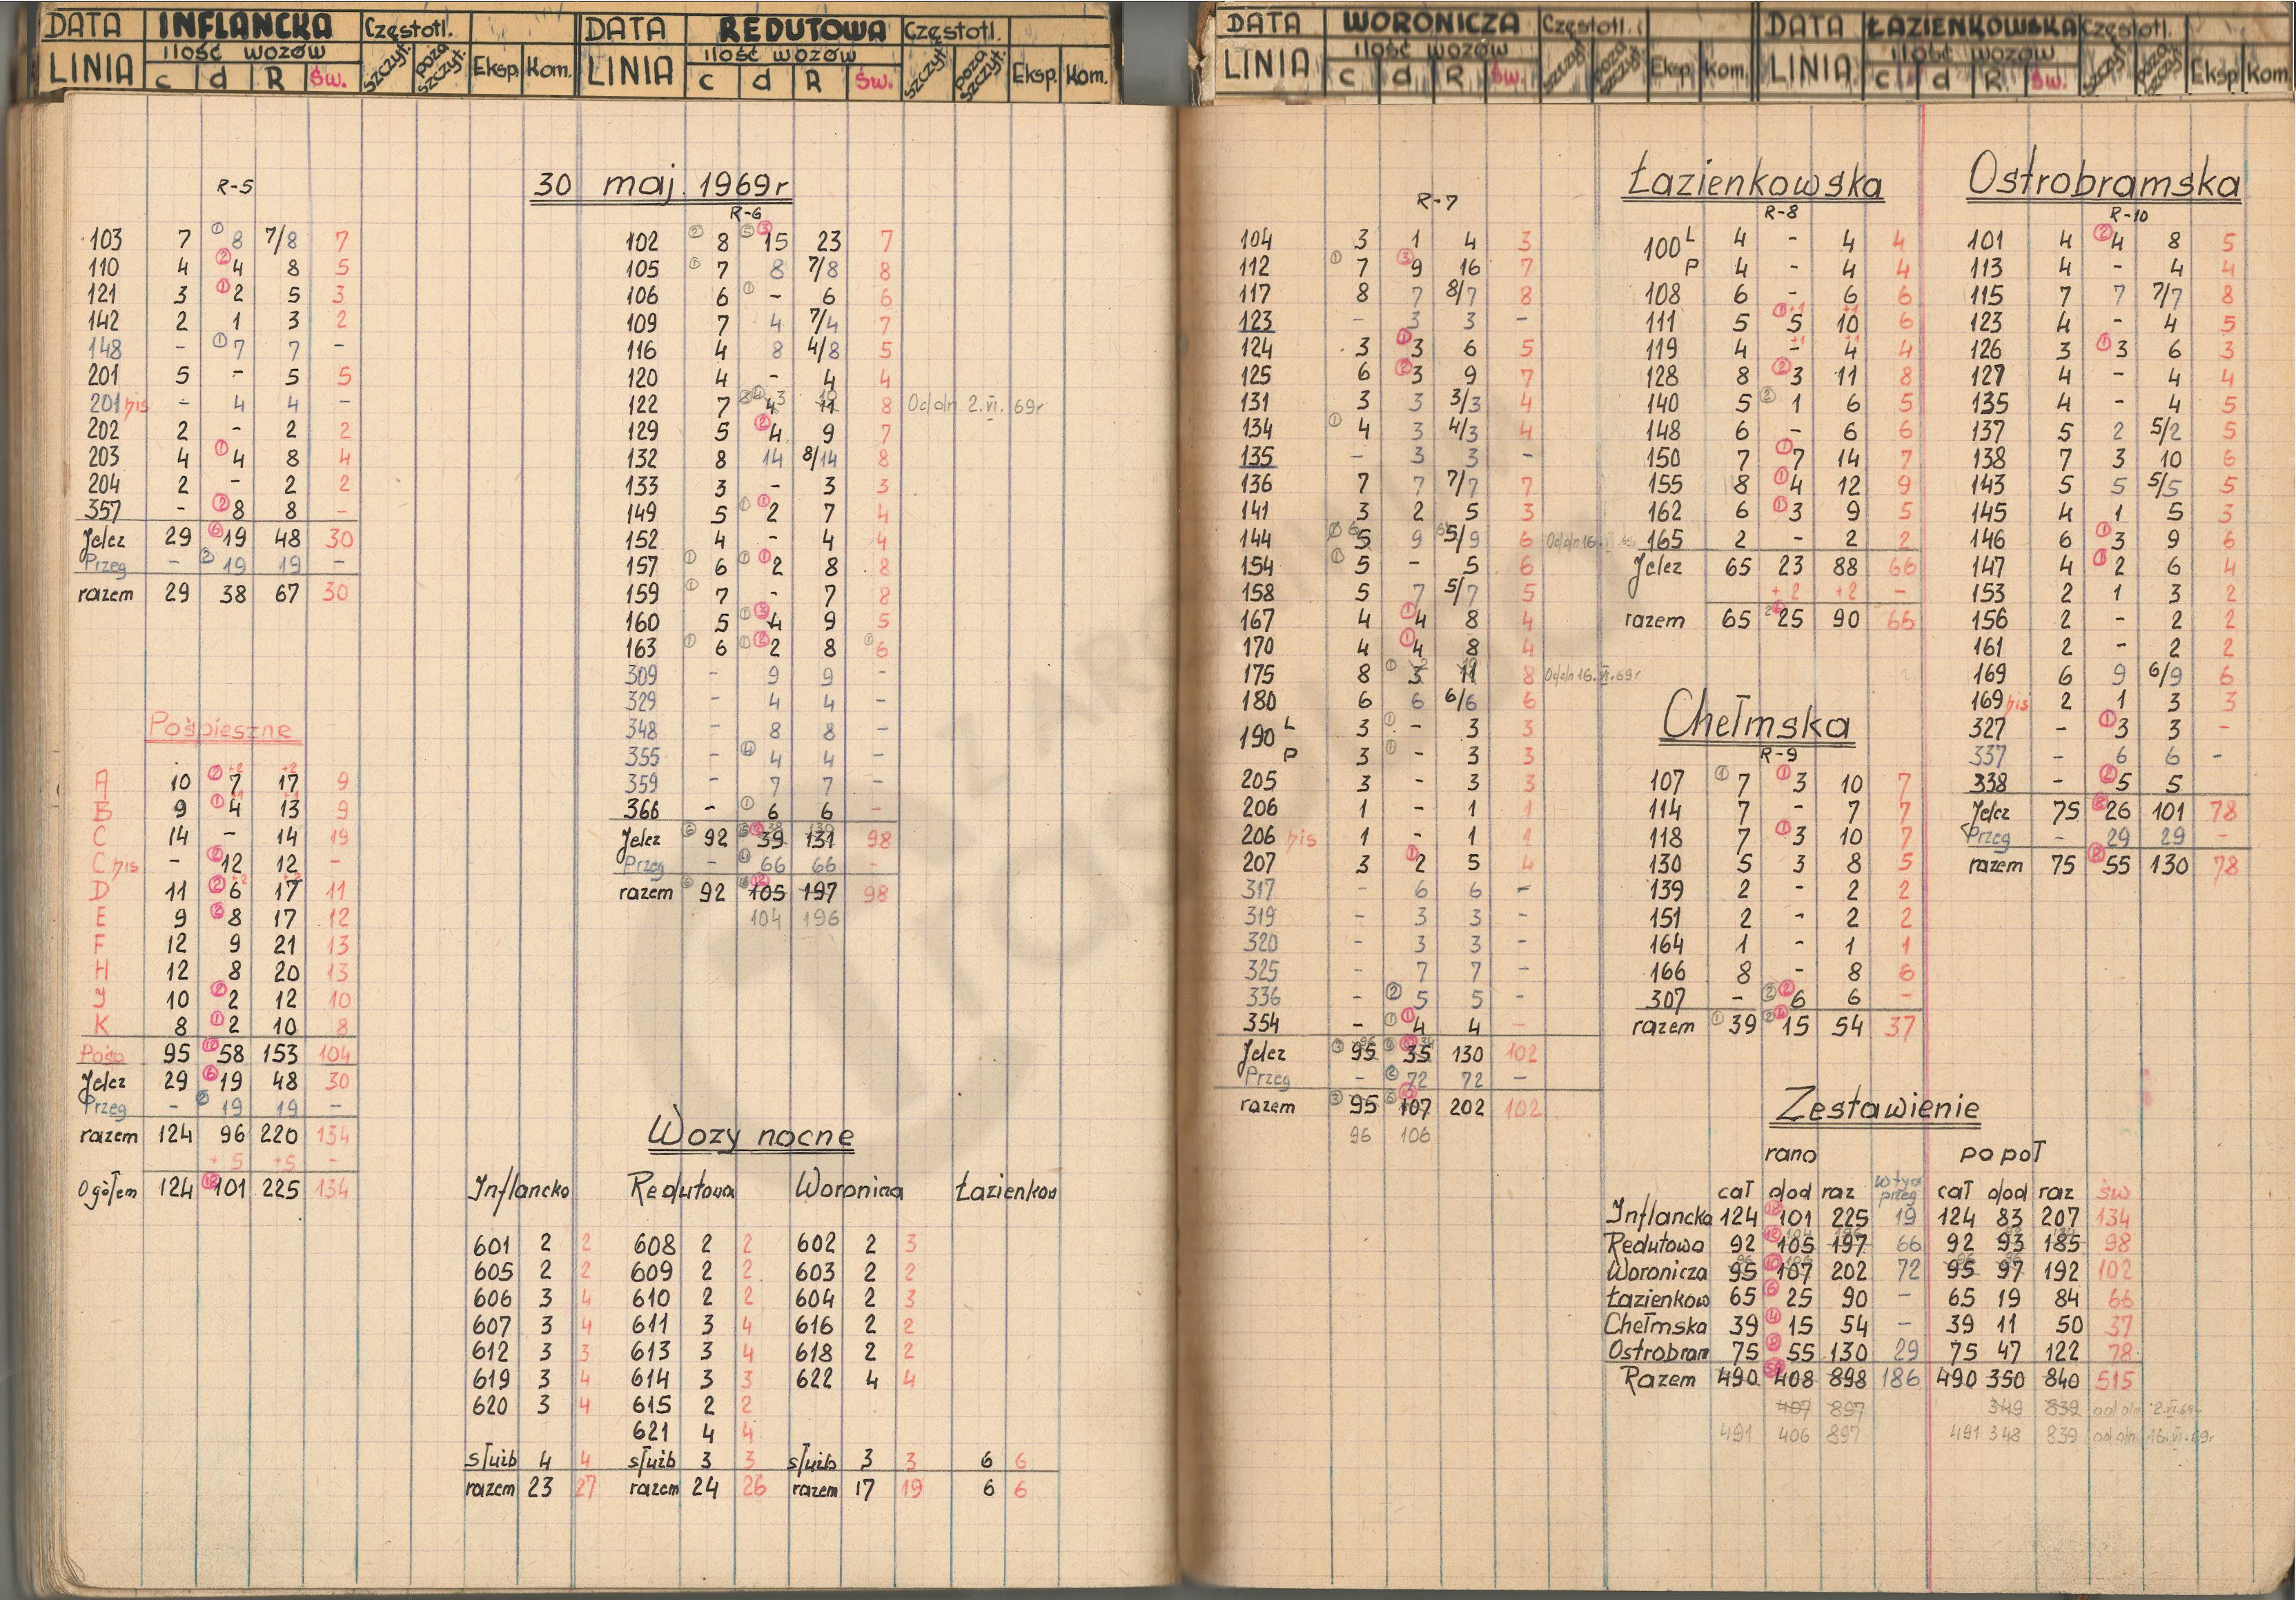 DATA INFLANCKA Częstotl.
LINIA ilość wozów szczyt. poza szczyt. Eksp. Kom.
c d R Św.
DATA REDUTOWA Częstotl.
LINIA ilość wozów szczyt. poza szczyt. Eksp. Kom.
c d R Św.
30 maj. 1969r
R-5
103 7 ① 8 7/8 7
110 4 ② 4 8 5
121 3 ① 2 5 3
142 2 1 3 2
148 - ① 7 7 -
201 5 - 5 5
201 bis - 4 4 -
202 2 - 2 2
203 4 ① 4 8 4
204 2 - 2 2
357 - ② 8 8 -
Jelcz 29 ⑥ 19 48 30
Przeg - ② 19 19 -
razem 29 38 67 30
Pośpieszne
A 10 ② 7 +2 17 +2 9
B 9 ① 4 +1 13 +1 9
C 14 - 14 19
C bis - ② 12 12 -
D 11 ② 6 +2 17 +2 11
E 9 ② 8 17 12
F 12 9 21 13
H 12 8 20 13
J 10 ② 2 12 10
K 8 ① 2 10 8
Pośp 95 58 153 104
Jelcz 29 ⑥ 19 48 30
Przeg - ② 19 19 -
razem 124 96 220 134
+5 +5 -
Ogółem 124 101 225 134
R-6
102 ② 8 ⑤ ③ 15 23 7
105 ① 7 8 7/8 8
106 6 ① - 6 6
109 7 4 7/4 7
116 4 8 4/8 5
120 4 - 4 4
122 7 4 3 11 10 8 Od dn 2.VI.69r
129 5 ② 4 9 7
132 8 14 8/14 8
133 3 - 3 3
149 5 ① ① 2 7 4
152 4 - 4 4
157 ① 6 ① ① 2 8 8
159 ① 7 - 7 8
160 5 ① ③ 4 9 5
163 ① 6 ① ② 2 8 ① 6
309 - 9 9 -
329 - 4 4 -
348 - 8 8 -
355 - ④ 4 4 -
359 - 7 7 -
366 - ① 6 6 -
Jelcz ⑥ 92 39 38 131 130 98
Przeg - ④ 66 66 -
razem ⑥ 92 105 197 98
104 196
Wozy nocne
Inflancka Redutowa Woronicza Łazienkow
601 2 2 608 2 2 602 2 3
605 2 2 609 2 2 603 2 2
606 3 4 610 2 2 604 2 3
607 3 4 611 3 4 616 2 2
612 3 3 613 3 4 618 2 2
619 3 4 614 3 3 622 4 4
620 3 4 615 2 2
621 4 4
służb 4 4 służb 3 3 służb 3 3 6 6
razem 23 27 razem 24 26 razem 17 19 6 6
DATA WORONICZA Częstotl.
LINIA ilość wozów szczyt. poza szczyt. Eksp. Kom.
c d R Św.
DATA ŁAZIENKOWSKA Częstotl.
LINIA ilość wozów szczyt. poza szczyt. Eksp. Kom.
c d R Św.
R-7
104 3 1 4 3
112 ① 7 ③ 9 16 7
117 8 7 8/7 8
123 - 3 3 -
124 3 ① 3 6 5
125 6 ② 3 9 7
131 3 3 3/3 4
134 ① 4 3 4/3 4
135 - 3 3 -
136 7 7 7/7 7
141 3 2 5 3
144 5 6 9 5/9 6 Od dn 16.VI.69r
154 ① 5 - 5 6
158 5 7 5/7 5
167 4 ① 4 8 4
170 4 ① 4 8 4
175 8 ① 3 11 8 Od dn 16.VI.69r
180 6 6 6/6 6
190 L 3 ① - 3 3
P 3 ① - 3 3
205 3 - 3 3
206 1 - 1 1
206 bis 1 - 1 1
207 3 ① 2 5 4
317 - 6 6 -
319 - 3 3 -
320 - 3 3 -
325 - 7 7 -
336 - ② 5 5 -
354 - ① ① 4 4 -
Jelcz ③ 95 96 35 34 130 102
Przeg - ② 72 72 -
razem ③ 95 107 202 102
96 106
Łazienkowska
R-8
100 L 4 - 4 4
P 4 - 4 4
108 6 - 6 6
111 5 ① 5 +1 10 +1 6
119 4 - +1 4 +1 4
128 8 ② 3 11 8
140 5 ② 1 6 5
148 6 - 6 6
150 7 ① 7 14 7
155 8 ① 4 12 9
162 6 ① 3 9 5
165 2 - 2 2
Jelcz 65 23 88 66
+2 +2 -
razem 65 25 90 66
Chełmska
R-9
107 ① 7 ① 3 10 7
114 7 - 7 7
118 7 ① 3 10 7
130 5 3 8 5
139 2 - 2 2
151 2 - 2 2
164 1 - 1 1
166 8 - 8 6
307 - ② ② 6 6 -
razem ① 39 ② ④ 15 54 37
Ostrobramska
R-10
101 4 ② 4 8 5
113 4 - 4 4
115 7 7 7/7 8
123 4 - 4 5
126 3 ① 3 6 3
127 4 - 4 4
135 4 - 4 5
137 5 2 5/2 5
138 7 3 10 6
143 5 5 5/5 5
145 4 1 5 3
146 6 ① 3 9 6
147 4 ① 2 6 4
153 2 1 3 2
156 2 - 2 2
161 2 - 2 2
169 6 9 6/9 6
169 bis 2 1 3 3
327 - ① 3 3 -
337 - 6 6 -
338 - ② 5 5
Jelcz 75 ⑧ 26 101 78
Przeg - 29 29 -
razem 75 ⑧ 55 130 78
Zestawienie
rano popoł
cał dod raz w tym przeg cał dod raz św
Inflancka 124 101 225 19 124 83 207 134
Redutowa 92 105 197 66 92 93 185 98
Woronicza 95 107 202 72 95 97 192 102
Łazienkow 65 ⑥ 25 90 - 65 19 84 66
Chełmska 39 ④ 15 54 - 39 11 50 37
Ostrobram 75 ⑧ 55 130 29 75 47 122 78
Razem 490 408 898 186 490 350 840 515
407 897 349 839 od dn 2.VI.69r
491 406 897 491 348 839 od dn 16.VI.69r